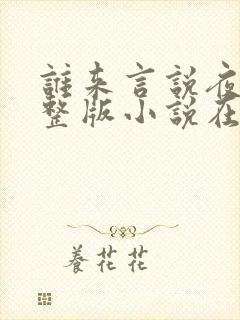 誰来言說夜
整版小說在
養花花